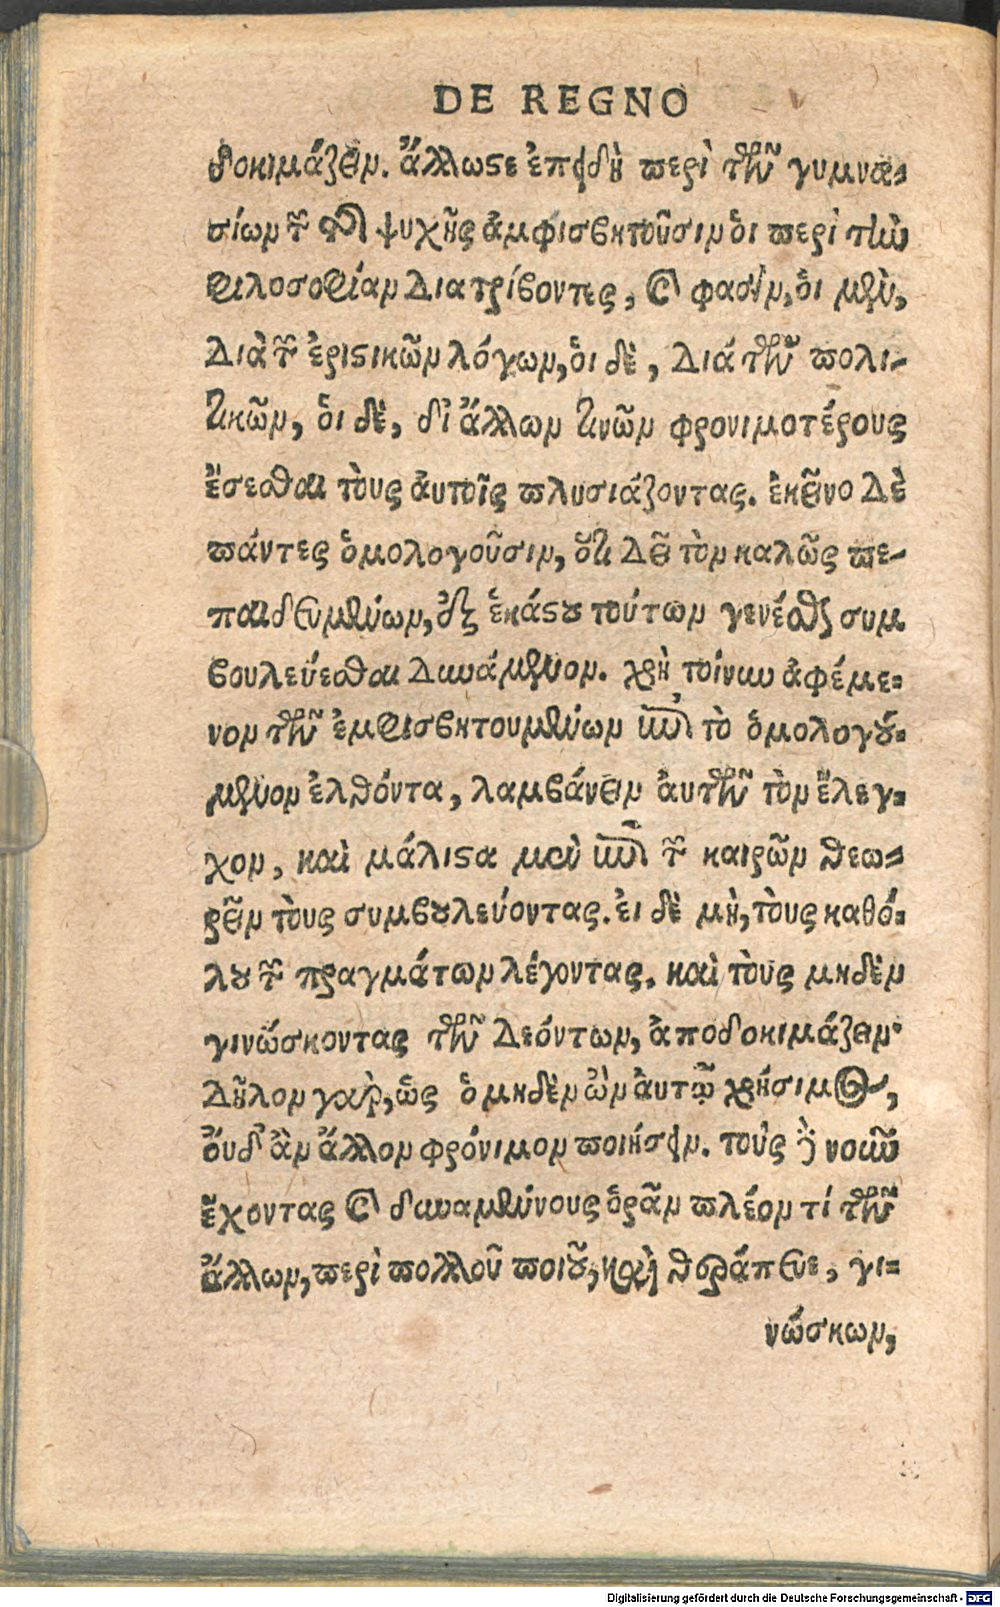 DE REGNO
δοκιμάζειν. ἄλλωστε ἐπειδὴ περὶ τῶν γυμνα-
σίων τῶν τῆς ψυχῆς ἀμφισβητοῦσιν οἱ περὶ τὴν
φιλοσοφίαν διατρίβοντες, καὶ φασὶν, οἱ μὲν,
διὰ τῶν ἐριστικῶν λόγων, οἱ δὲ, διά τῶν πολι-
τικῶν, οἱ δὲ, δι' ἄλλων τινῶν φρονιμοτέρους
ἔσεσθαι τοὺς ἀυτοῖς πλυσιάζοντας. ἐκεῖνο δὲ
πάντες ὁμολογοῦσιν, ὅτι δεῖ τὸν καλῶς πε-
παιδευμένων, ἐξ ἑκάστου τούτων γενέσθαι συμ
βουλεύεσθαι δυνάμενον. χρὴ τοίνυν ἀφέμε-
νον τῶν ἐμφισβητουμένων ἐπὶ τὸ ὁμολογού-
μενον ἐλθόντα, λαμβάνειν ἀυτῶν τὸν ἔλεγ-
χον, καὶ μάλιστα μὲν ἐπὶ τῶν καιρῶν θεω-
ρεῖν τοὺς συμβουλεύοντας. ἐι δὲ μὴ, τοὺς καθό-
λου τῶν πραγμάτων λέγοντας. καὶ τοὺς μηδὲν
γινώσκοντας τῶν δεόντων, ἀποδοκιμάζειν·
δῆλον γὰρ, ὡς ὁ μηδὲν ὢν ἀυτῷ χρήσιμος,
ὀυδ' ἂν ἄλλον φρόνιμον ποιήσειν. τοὺς δὲ νοῦν
ἔχοντας καὶ δυναμένους ὁρᾶν πλέον τί τῶν
ἄλλων, περὶ πολλοῦ ποιοῦ, καὶ θεράπευε, γι-
νώσκων,
Digitalisierung gefördert durch die Deutsche Forschungsgemeinschaft - DFG